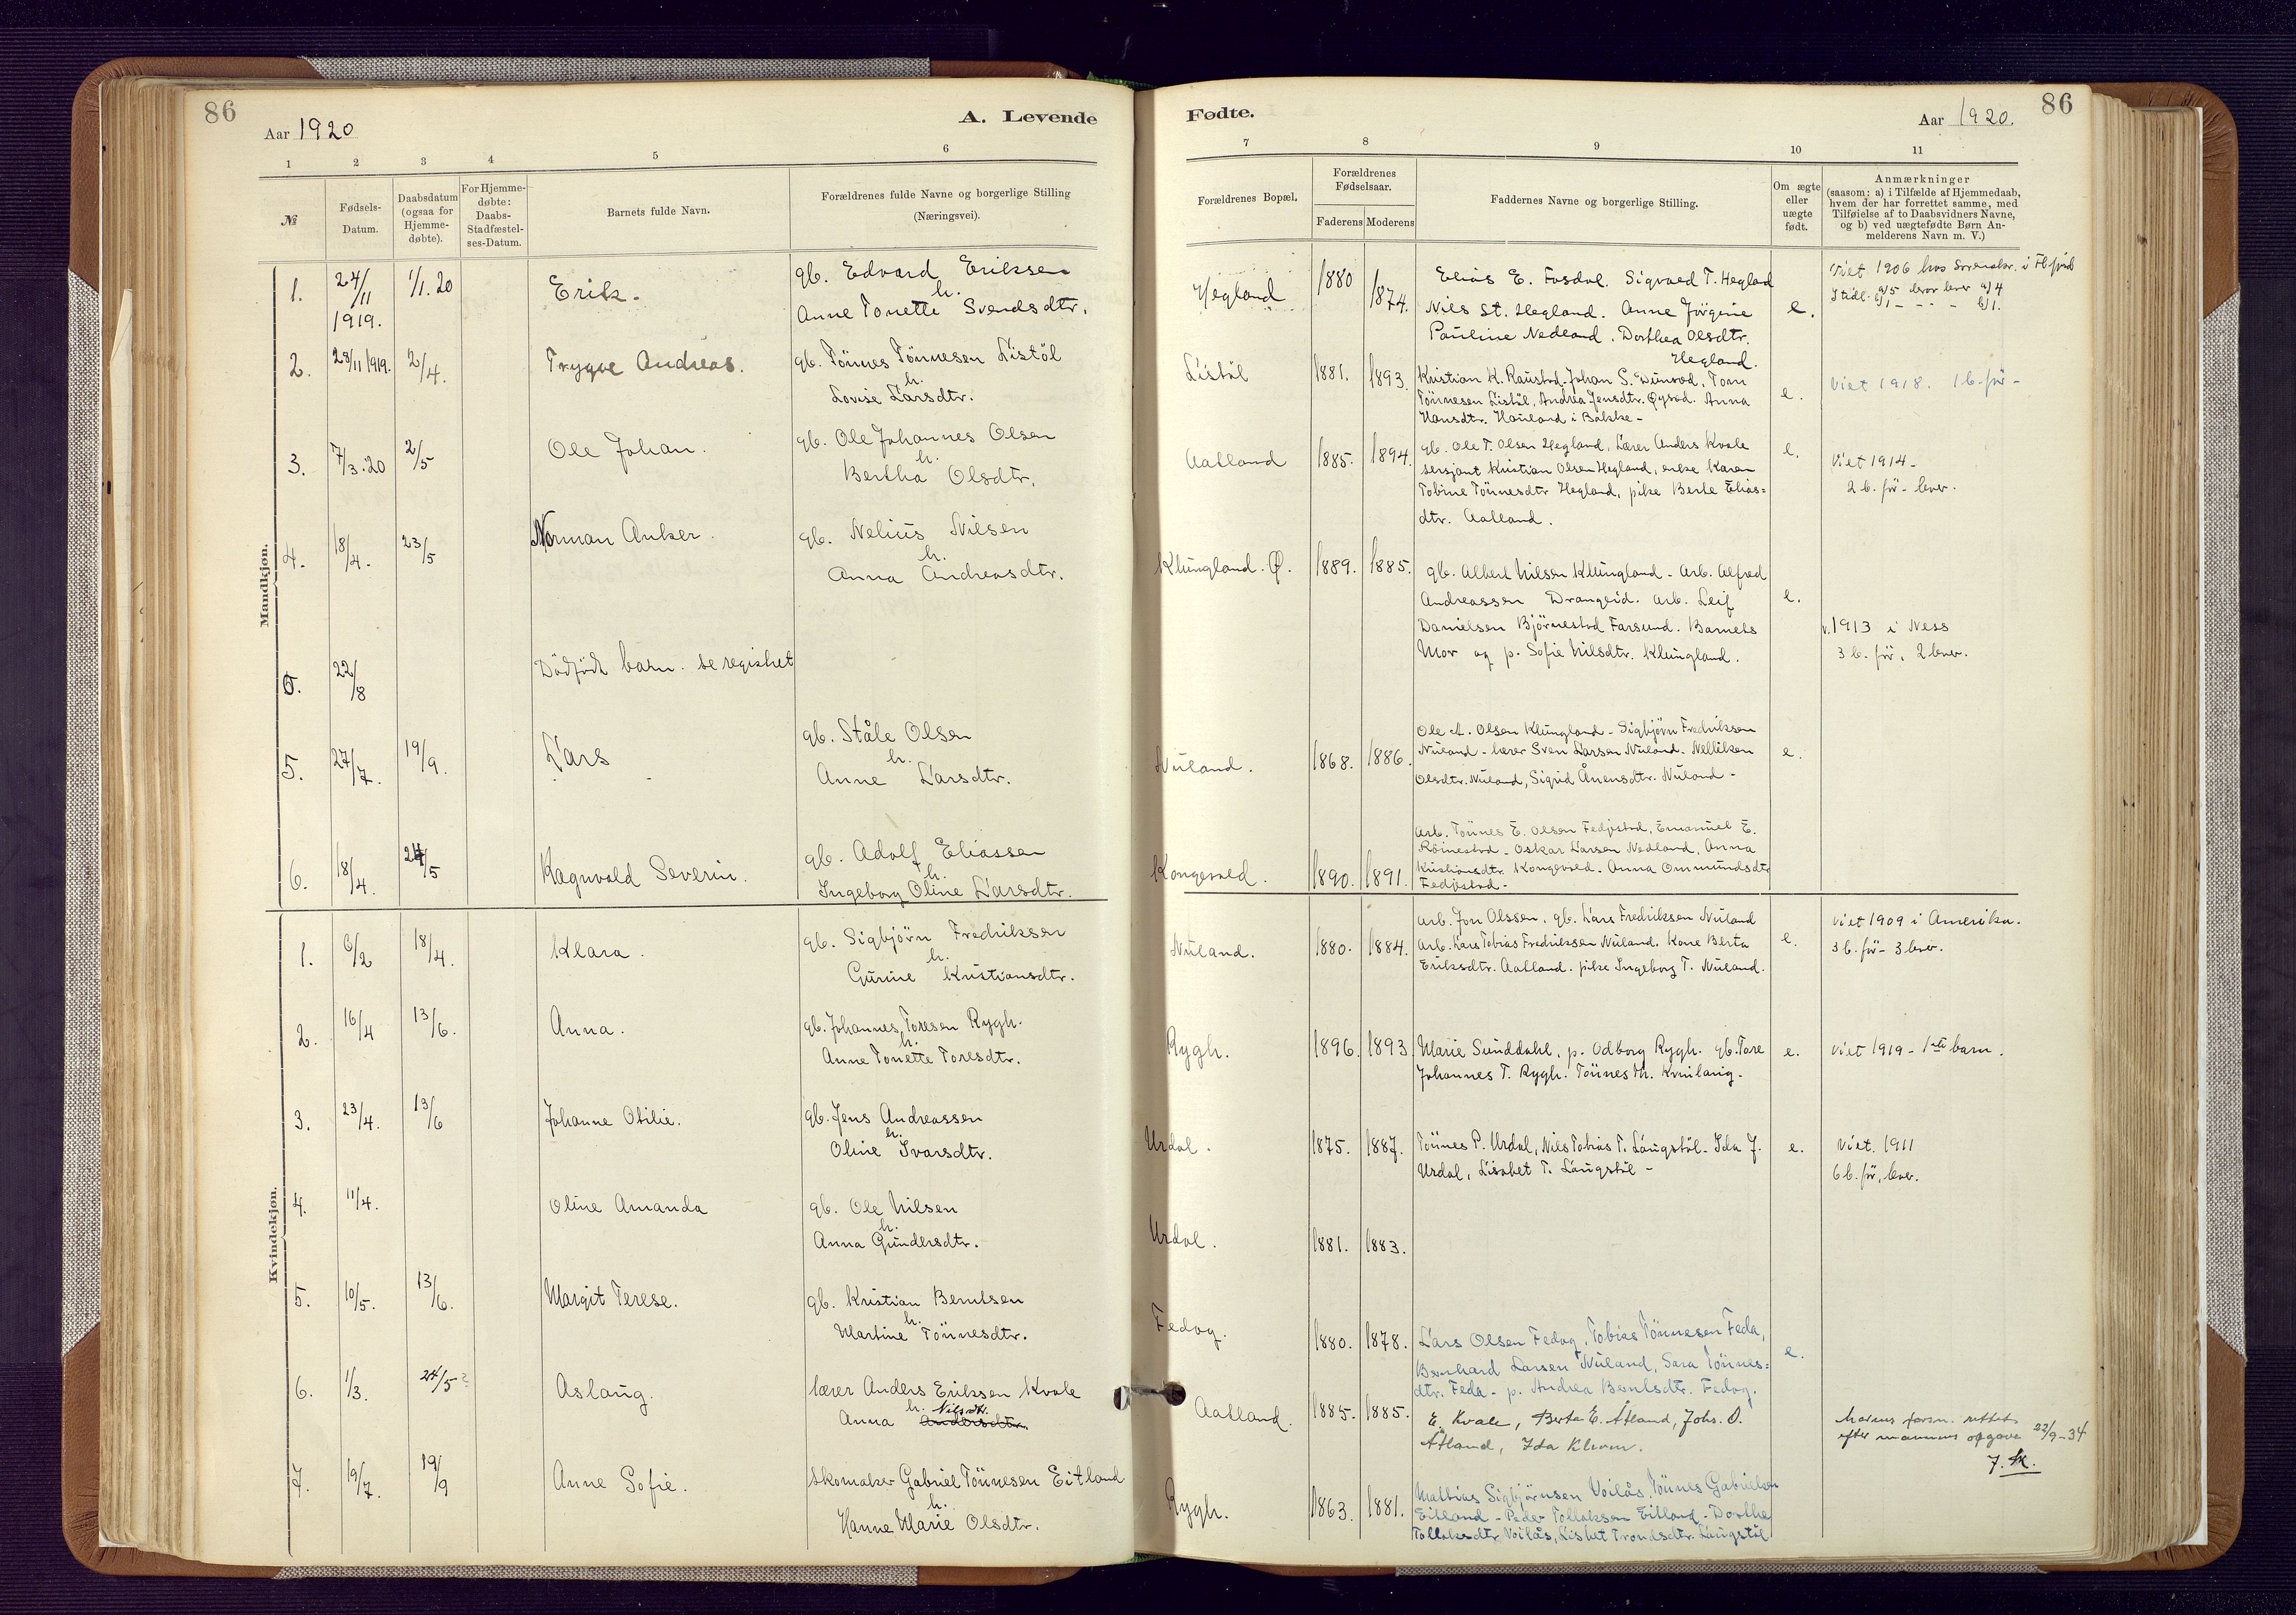 86
Aar 1920
A. Levende
1 2 3 4 5 6
№
Fødsels-
Datum.
Daabsdatum
(ogsaa for
Hjemme-
døbte).
For Hjemme-
døbte:
Daabs-
Stadfæstel-
ses-Datum.
Barnets fulde Navn.
Forældrenes fulde Navne og borgerlige Stilling
(Næringsvei).
Mandkjøn.
1. 24/11 1919. 1/1.20 Erik. gb. Edvard Eriksen
h.
Anne Tonette Svendsdtr.
2. 28/11 1919. 2/4. Trygve Andreas. gb. Tönnes Tönnesen Listöl
h.
Lovise Larsdtr.
3. 7/3.20 2/5 Ole Johan. gb. Ole Johannes Olsen
h.
Bertha Olsdtr.
4. 18/4. 23/5 Norman Anker. gb. Nelius Nilsen
h.
Anna Andreasdtr.
22/8 Dödfödt barn. se registret
5. 27/7. 19/9. Lars gb. Ståle Olsen
h.
Anne Larsdtr.
6. 18/4. 24/5 Ragnvald Severin. gb. Adolf Eliassen
h.
Ingeborg Oline Larsdtr.
Kvindekjøn.
1. 6/2 18/4. Klara. gb. Sigbjörn Fredriksen
h.
Gurine Kristiansdtr.
2. 16/4 13/6. Anna. gb. Johannes Toresen Rygh.
h.
Anne Tonette Toresdtr.
3. 23/4. 13/6 Johanne Otilie. gb. Jens Andreassen
h.
Oline Ivarsdtr.
4. 11/4. Oline Amanda gb. Ole Nilsen
h.
Anna Gundersdtr.
5. 10/5. 13/6. Margit Terese. gb. Kristian Berntsen
h.
Martine Tönnesdtr.
6. 1/3. 24/5? Aslaug. lærer Anders Eriksen Kvale
h. Nilsdtr.
Anna Andersdtr.
7. 19/7. 19/9 Anne Sofie. Skomaker Gabriel Tönnesen Eitland
h.
Hanne Marie Olsdtr.
Fødte.
Aar 1920.
86
7 8 9 10 11
Forældrenes Bopæl.
Forældrenes
Fødselsaar.
Faderens Moderens
Faddernes Navne og borgerlige Stilling.
Om ægte
eller
uægte
født.
Anmærkninger
(saasom: a) i Tilfælde af Hjemmedaab,
hvem der har forrettet samme, med
Tilføielse af to Daabsvidners Navne,
og b) ved uægtefødte Børn An-
melderens Navn m. V.)
Hegland 1880 1874. Elias E. Fosdal. Sigvaed T. Hegland
Nils St. Hegland. Anne Jörgine
Pauline Nedland. Dorthea Olsdtr.
Hegland.
e.
Viet 1906 hos i Fl.fjord
a) 5 lever a) 4
b) 1 - - - b) 1.
Listöl 1881. 1893. Kristian K. Raustad. Johan S. Tom
Tönnesen Listöl, Andrea Jensdtr. Öysæd. Anna
Hansdtr. Hauland i Bakke -
e.
Viet 1918. 1 b. för -
Aalland 1885. 1894. gb. Ole T. Olsen Hegland, Lærer Anders Kvale
sersjant Kristian Olsen Hegland, enke Karen
Tobine Tönnesdtr Hegland, pike Berte Elias=
dtr. Aalland.
e.
Viet 1914 -
2 b. för - lever.
Klungland. Ø. 1889. 1885. gb. Albert Nilsen Klungland - Arb. Alfred
Andreassen Drangeid. arb. Leif
Danielsen Björnestad Farsund. Barnets
Mor og p. Sofie Nilsdtr. Klungland.
e.
v. 1913 i Ness
3 b. för, 2 lever.
Nuland. 1868. 1886. Ole A. Olsen Klungland - Sigbjörn Fredriksen
Nuland - lærer Sven Larsen Nuland. Nelliken
Olsdtr. Nuland, Sigrid Ånensdtr. Nuland -
e.
Kongevoed. 1890. 1891. Arb. Tönnes E. Olsen Fedjestad, Emanuel E.
Röinestad - Oskar Larsen Nedland, Anna
Kristiansdtr. Kongevoed - Anna Ommundsdtr
Fedjestad -
Nuland. 1880. 1884. arb. Jon Olssen. gb. Lars Fredriksen Nuland
arb. Lars Tobias Fredriksen Nuland. Kone Berta
Eriksdtr. Aalland. pike Ingeborg T. Nuland.
e.
Viet 1909 i Amerika.
3 b. för - 3 lever.
Rygh. 1896. 1893 Marie Sunddahl, p. Odborg Rygh. gb. Tore
Johannes T. Rygh. Tönnes Th. Kvinlaug -
e.
Viet 1919 - 1ste barn.
Urdal. 1875. 1887. Tönnes P. Urdal, Nils Tobias T. Laugstöl - Ida J.
Urdal, Lisabet T. Laugstöl -
e.
Viet. 1911
6 b. för, lever.
Urdal. 1881. 1883.
Fedog. 1880. 1878. Lars Olsen Fedog, Tobias Tönnesen Feda,
Bernhard Larsen Nuland, Sara Tönnes=
dtr. Feda - p. Andrea Berntsdtr. Fedog.
e.
Aatland. 1885. 1885. E. Kvale, Berta E. Åtland, Johs. O.
Åtland, Ida Klovn.
Morens forn. rettet
efter mannens opgave 22/9-34
Rygh. 1863. 1881. Mathias Sigbjörnsen Voilås, Tönnes Gabrielsen
Eitland - Peder Tollaksen Eitland - Dorthe
Tollaksdtr. Voilås, Lisbet Trondsdtr. Laugstöl